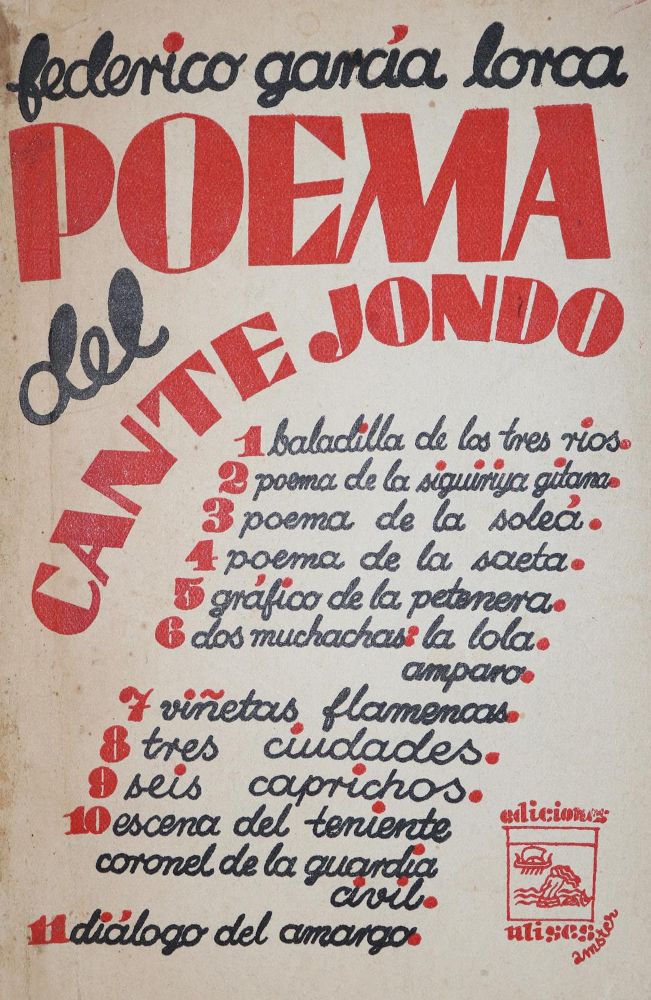 federico garcía lorca
POEMA
del
CANTE JONDO
1 baladilla de los tres rios.
2 poema de la siguiriya gitana.
3 poema de la soleá.
4 poema de la saeta.
5 gráfico de la petenera.
6 dos muchachas: la lola.
amparo.
7 viñetas flamencas.
8 tres ciudades.
9 seis caprichos.
10 escena del teniente
coronel de la guardia
civil.
11 diálogo del amargo.
ediciones
ulises
amster